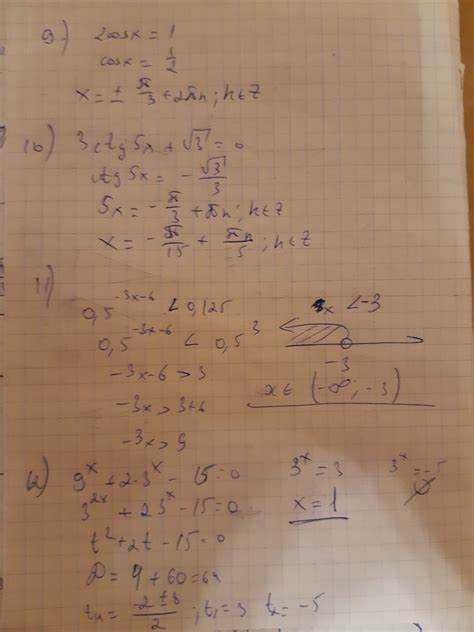 9) 2cosx = 1
cosx = 1/2
x = ± π/3 + 2πn; n∈Z
10) 3ctg5x + √3 = 0
ctg5x = - √3/3
5x = - π/3 + πn; n∈Z
x = - π/15 + πn/5; n∈Z
11)
0,5^(-3x-6) < 0,125
0,5^(-3x-6) < 0,5^3
-3x-6 > 3
-3x > 3+6
-3x > 9
x < -3
-3
x∈ (-∞; -3)
12) 9^x + 2·3^x - 15 = 0
3^(2x) + 2·3^x - 15 = 0
t² + 2t - 15 = 0
D = 4 + 60 = 64
t = (-2±8)/2; t₁ = 3 t₂ = -5
3^x = 3 3^x = -5
x = 1 ∅